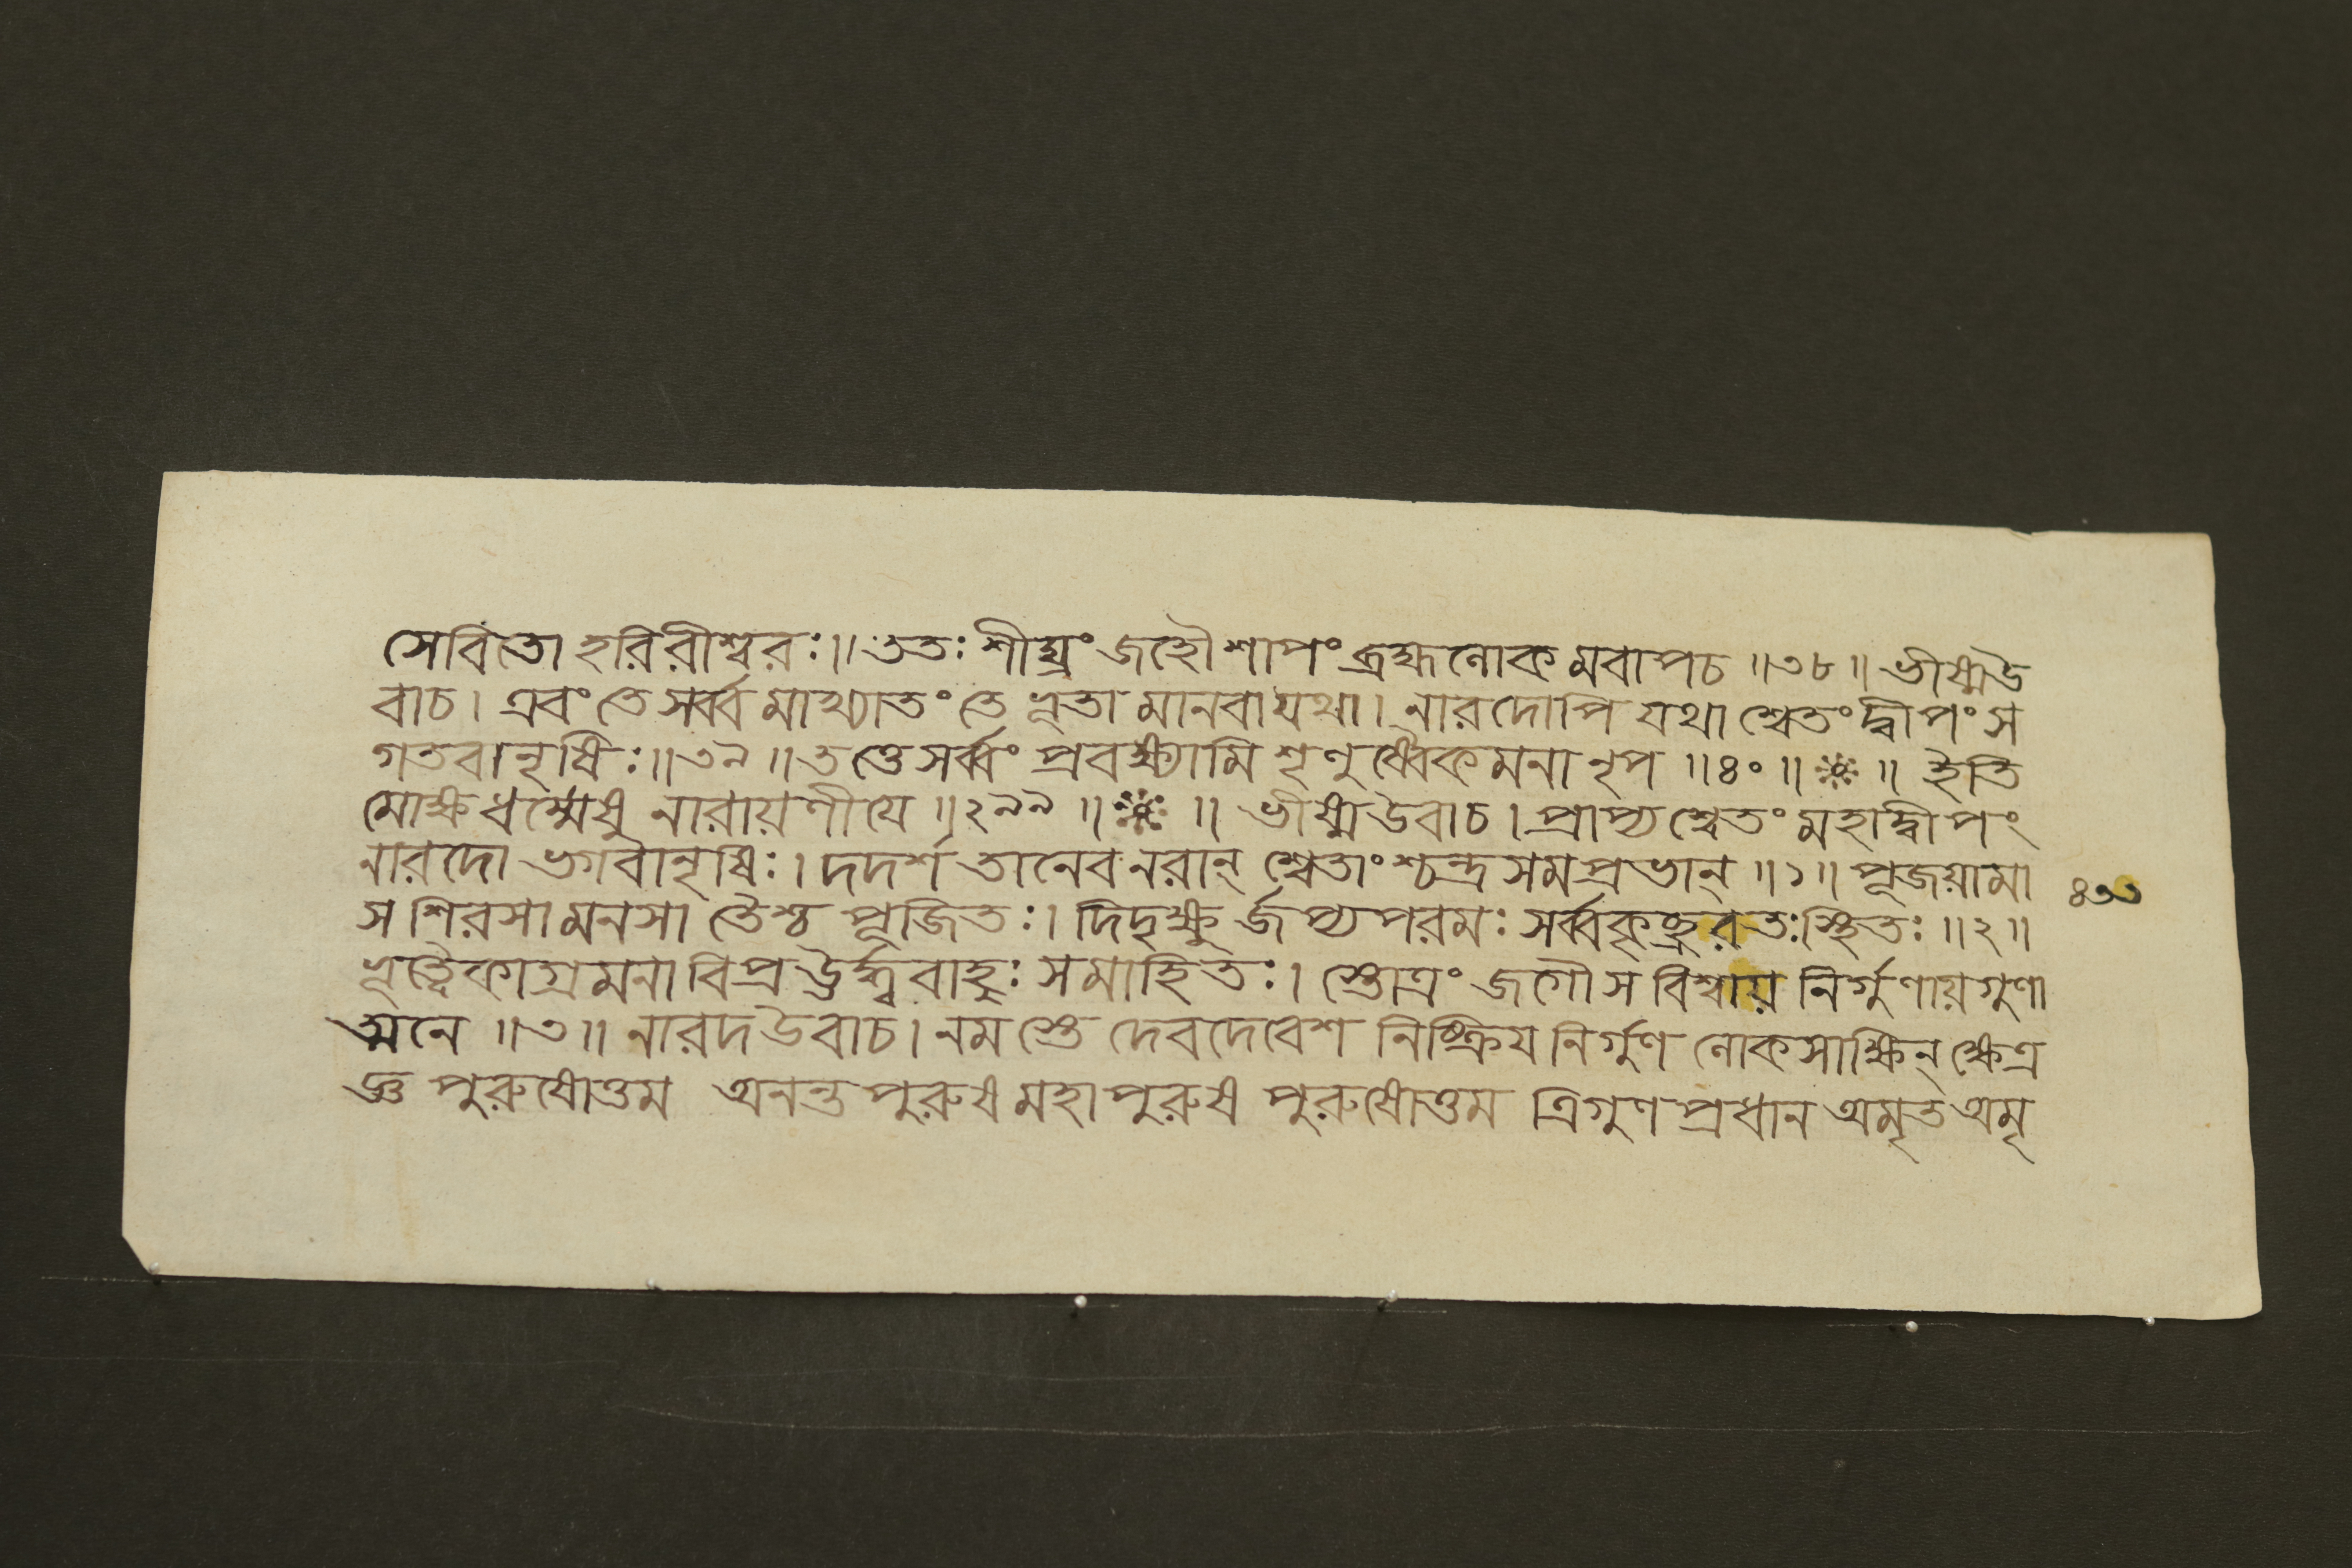 সেবিতো হরিরীশ্বরঃ॥ততঃ শীঘ্রং জহৌশাপং ব্রহ্মলোকমবাপচ ॥৩৮॥ ভীষ্মউ
বাচ। এবং তে সর্ব্বমাখ্যাতং তে ভূতা মানবা যথা। নারদোপি যথা শ্বেতং দ্বীপং স
গতবানৃষিঃ॥৩৯॥তত্তে সর্ব্বং প্রবক্ষ্যামি শৃণুষ্বৈকমনা নৃপ ॥৪০॥ ॥ ইতি
মোক্ষধর্ম্মেষু নারায়ণীযে ॥২৯৯॥ ॥ ভীষ্মউবাচ। প্রাপ্য শ্বেতং মহাদ্বীপং
নারদো ভগবানৃষিঃ। দদর্শ তানেবনরান্ শ্বেতাংশ্চন্দ্রসমপ্রভান্ ॥১॥ পূজয়ামা
স শিরসা মনসা তৈশ্চ পূজিতঃ। দিদৃক্ষুর্জপ্যপরমঃ সর্ব্বকৃচ্ছ্ররতঃস্থিতঃ ॥২॥
ভূত্বৈকাগ্রমনা বিপ্র ঊর্দ্ধ্ববাহুঃ সমাহিতঃ। স্তোত্রং জগৌ স বিশ্বায় নির্গুণায়গুণা
ত্মনে ॥৩॥ নারদউবাচ। নমস্তে দেবদেবেশ নিষ্ক্রিয নির্গুণ লোকসাক্ষিন্ ক্ষেত্র
জ্ঞ পুরুষোত্তম অনন্ত পুরুষ মহাপুরুষ পুরুষোত্তম ত্রিগুণপ্রধান অমৃত অমৃ
৪৩